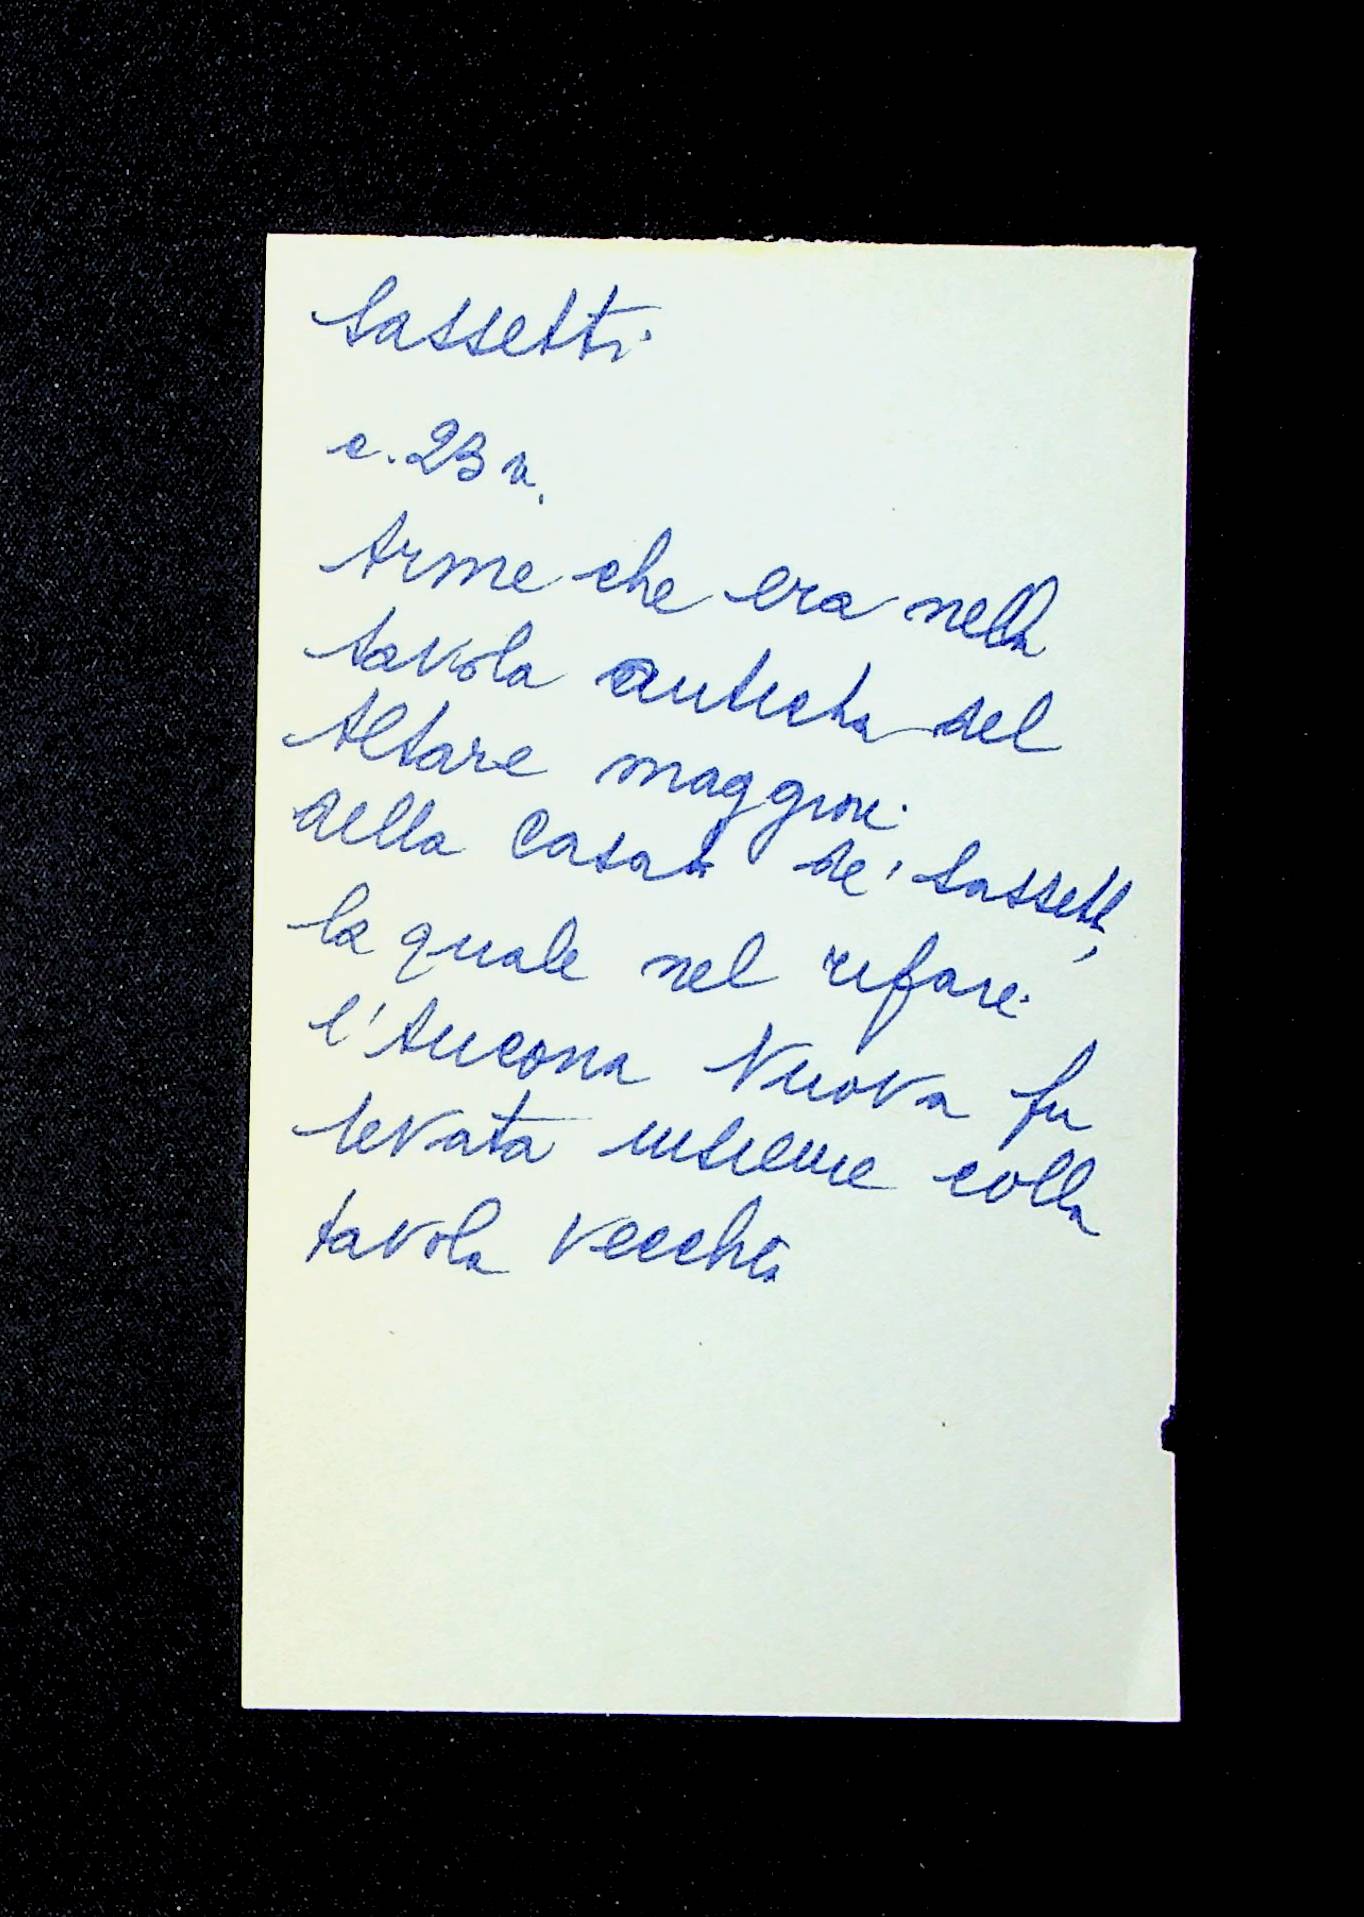 Sassetti
c. 23 v.
Arme che era nella
tavola anticha del
Altare maggiore
della Casata de' Sassetti,
la quale nel rifare
l'Ancona Nuova fu
levata insieme colla
tavola vecchia